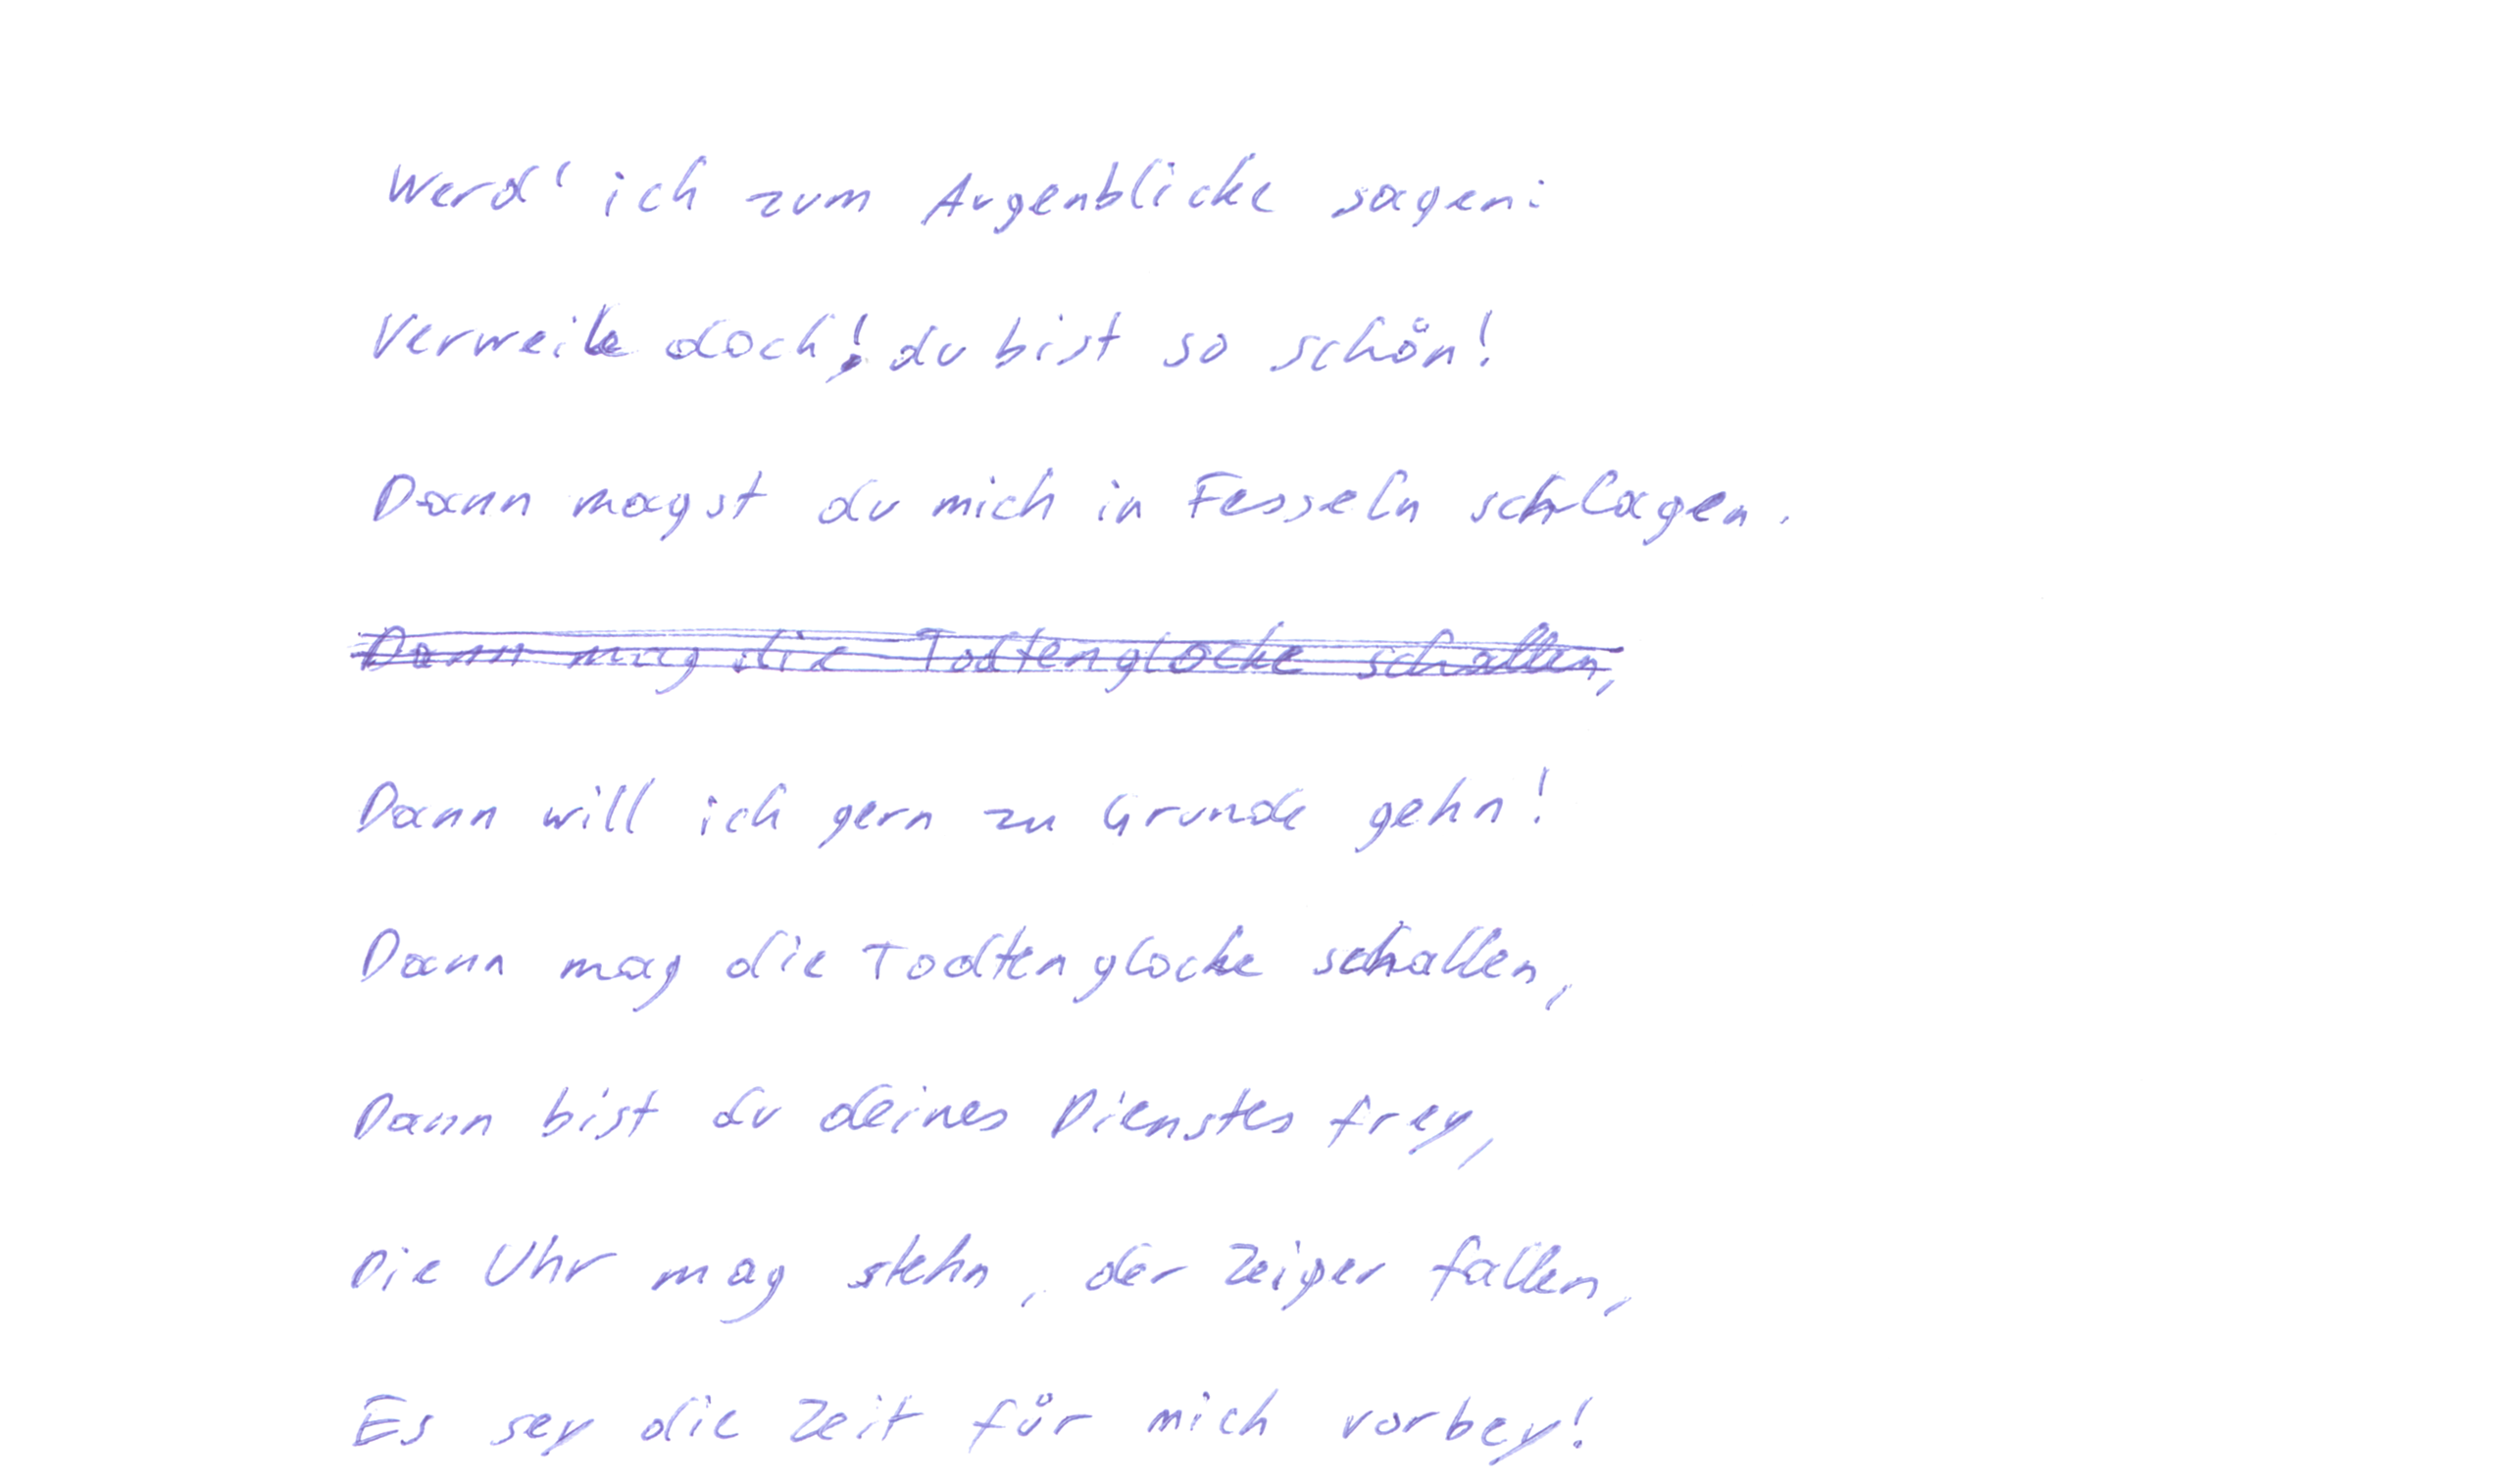 Werd' ich zum Augenblicke sagen:
Verweile doch! du bist so schön!
Dann magst du mich in Fesseln schlagen.
Dann mag die Todtenglocke schallen,
Dann will ich gern zu Grunde gehn!
Dann mag die Todtenglocke schallen,
Dann bist du deines Dienstes frey,
Die Uhr mag stehn, der Zeiger fallen,
Es sey die Zeit für mich vorbey!